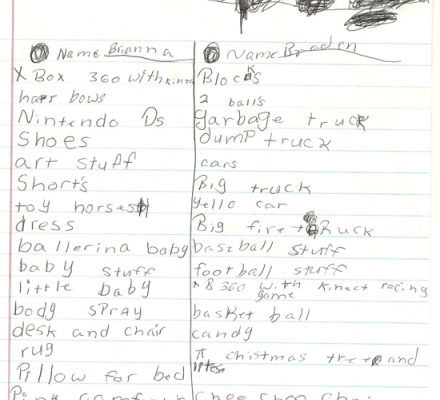 Name Brianna
X Box 360 with kinna
hair bows
Nintendo Ds
Shoes
art stuff
Short's
toy horses
dress
ballerina baby
baby stuff
little baby
body sPray
desk and chair
rug
Pillow for bed
Name Braden
Blocks
2 balls
garbage truck
dump truck
cars
Big truck
yello car
Big fire truck
baseball stuff
football stuff
x B 360 with kinect racing
game
basket ball
candy
chistmas tree and